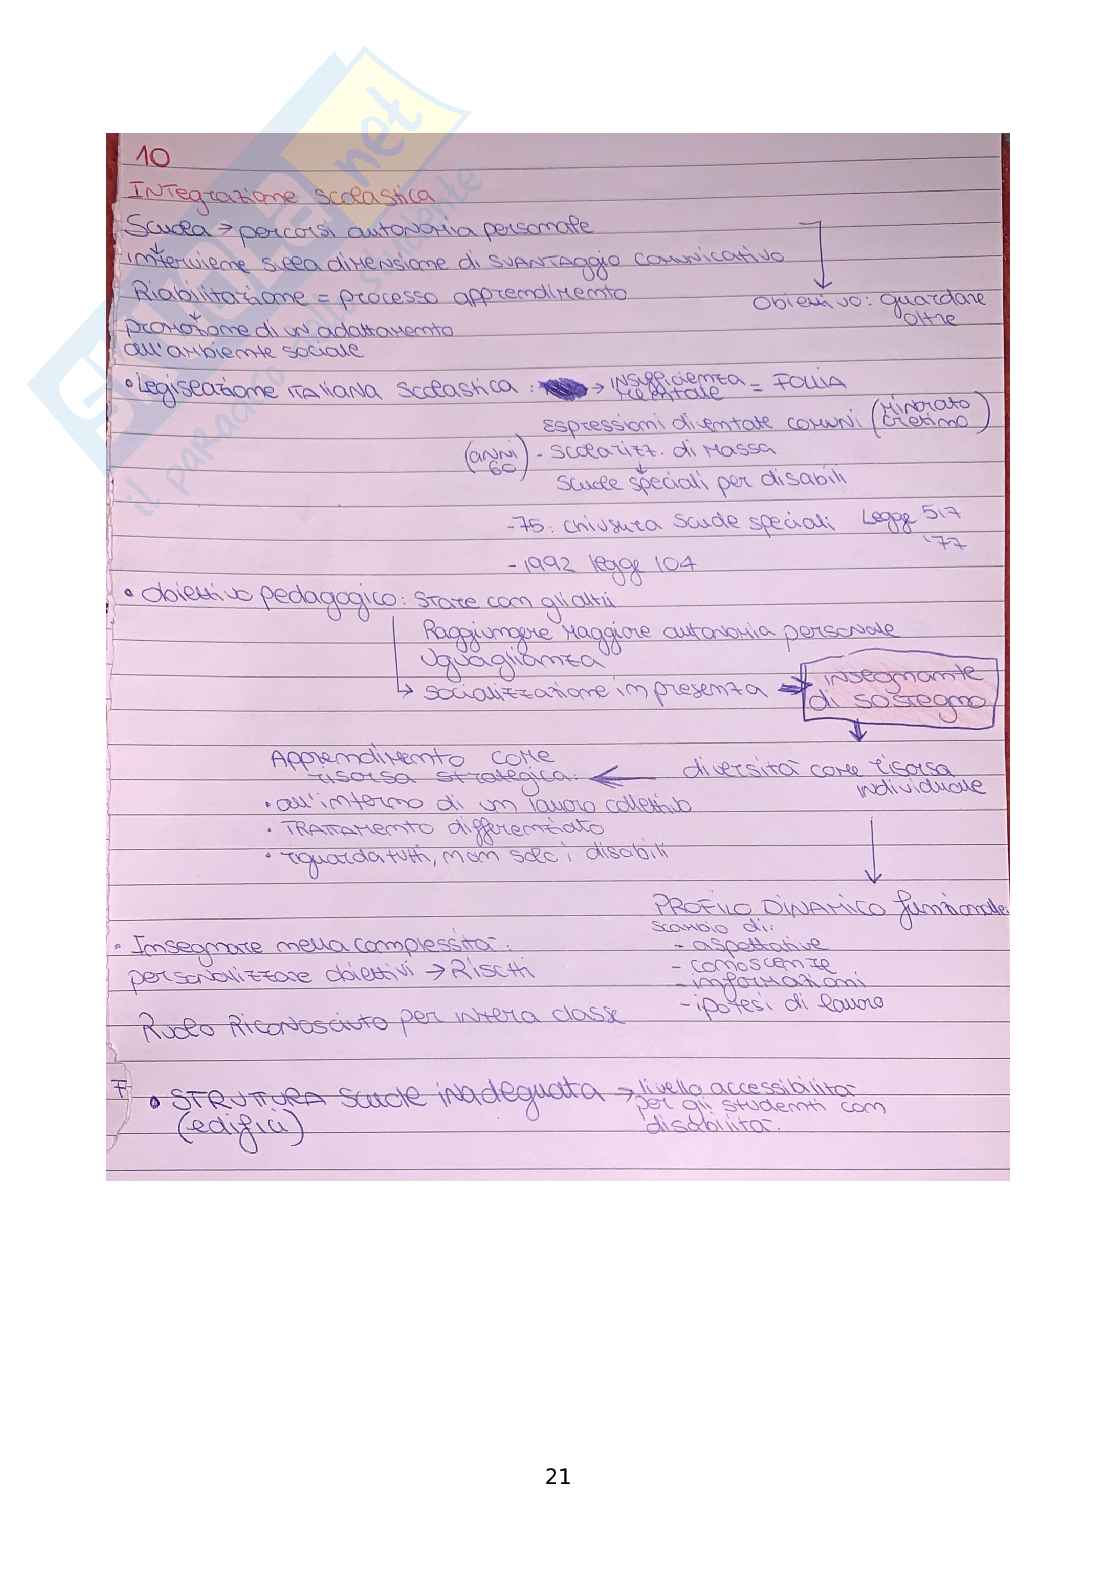 10
Integrazione scolastica
Scuola → percorsi autonomia personale
interviene sulla dimensione di svantaggio comunicativo
Riabilitazione = processo apprendimento
Obiettivo: guardare
oltre
promozione di un adattamento
all'ambiente sociale
• Legislazione italiana scolastica : → insufficienza
mentale = FOLLIA
Espressioni diventate comuni (minorato
cretino)
(anni
60) - scolarizz. di massa
↓
scuole speciali per disabili
- 75: chiusura scuole speciali Legge 517
'77
- 1992 legge 104
• obiettivo pedagogico: stare con gli altri
Raggiungere maggiore autonomia personale
uguaglianza
→ socializzazione in presenza → insegnante
di sostegno
Apprendimento come
risorsa strategica: ← diversità come risorsa
individuale
• all'interno di un lavoro collettivo
• TRATTAMENTO differenziato
• riguarda tutti, non solo i disabili
PROFILO DINAMICO funzionale:
scambio di:
- aspettative
- conoscenze
- informazioni
- ipotesi di lavoro
• Insegnare nella complessità:
personalizzare obiettivi → Rischi
Ruolo Riconosciuto per intera classe
F
• STRUTTURA scuole inadeguata → livello accessibilità
per gli studenti con
disabilità.
(edifici)
skuola.net
il paradiso dello studente
21